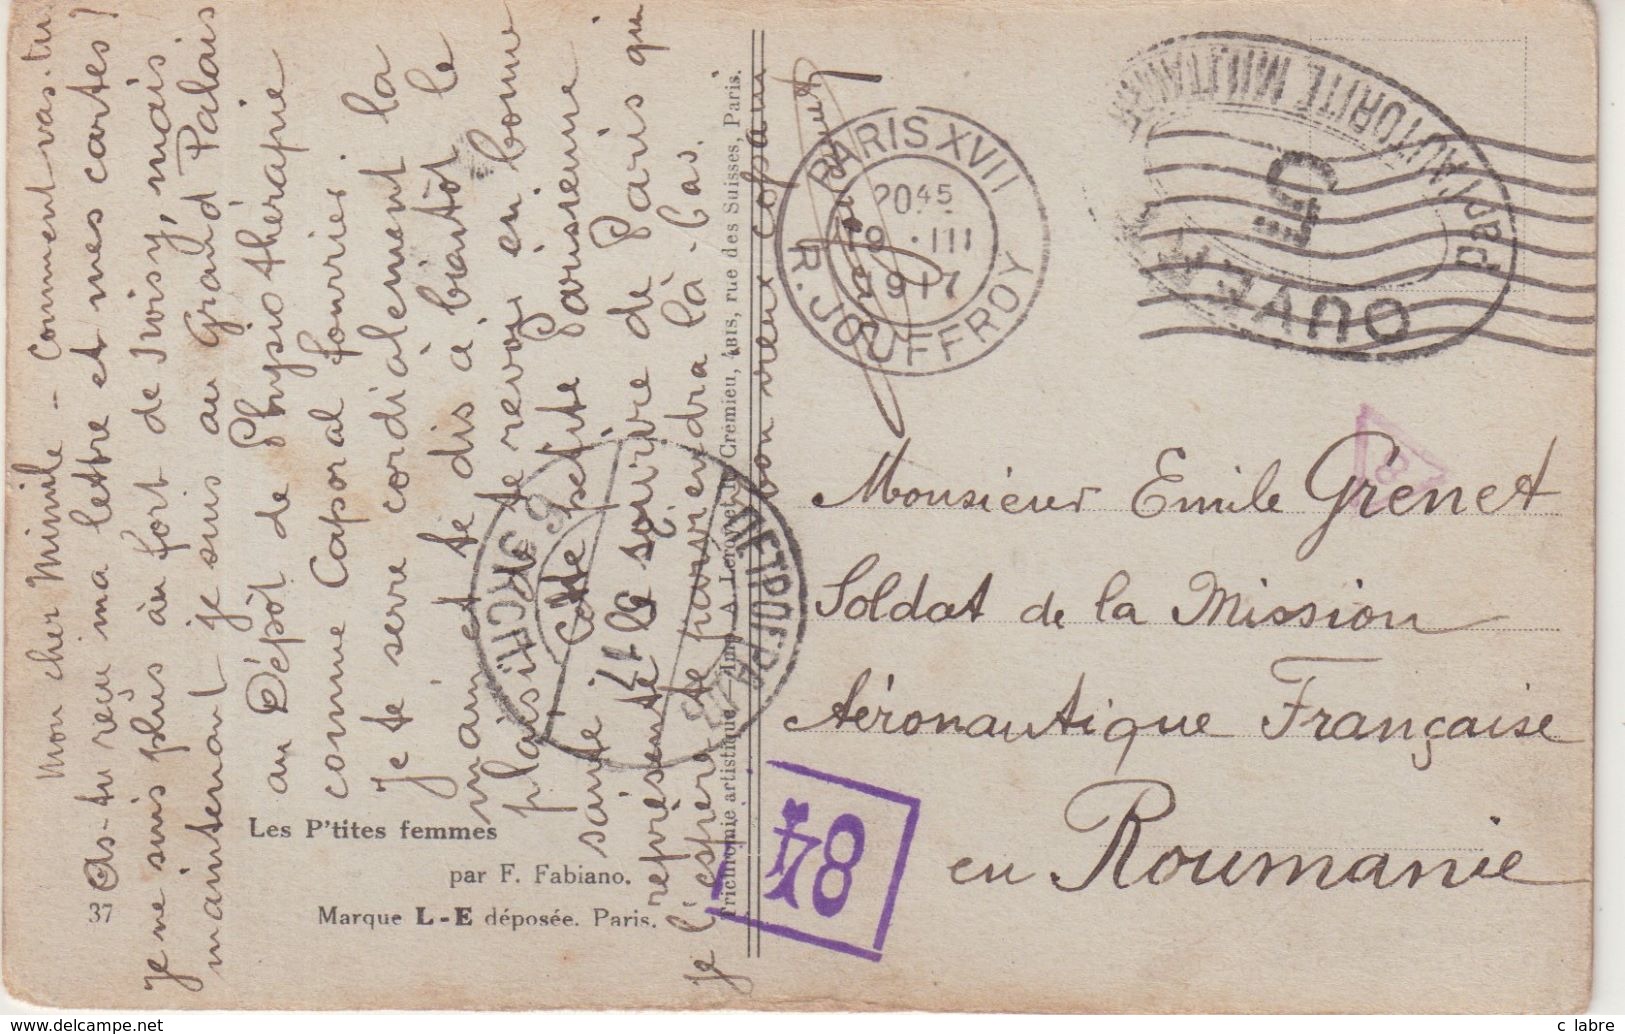 Mon cher Mimile - Comment vas-tu
As-tu reçu ma lettre et mes cartes ?
je ne suis plus au fort de Noisy, mais
maintenant je suis au Grand Palais
au Dépôt de Physiothérapie
comme Caporal fourrier
Je te serre cordialement la
main et te dis à bientôt le
plaisir de te revoir en bonne
santé Cette petite Parisienne
représente le sourire de Paris qui
je l'espère te parviendra là-bas.
ton vieux copain
Les P'tites femmes
par F. Fabiano.
37
Marque L-E déposée. Paris.
Trichromie artistique
Crémieu, 4bis, rue des Suisses, Paris.
PARIS XVII
2045
19 · III
1917
R. JOUFFROY
OUVERT
par l'AUTORITÉ MILITAIRE
5
Monsieur Emile Grenet
Soldat de la Mission
Aéronautique Française
en Roumanie
84
8
ПЕТРОГРАД
17
c labre
https://www.delcampe.net